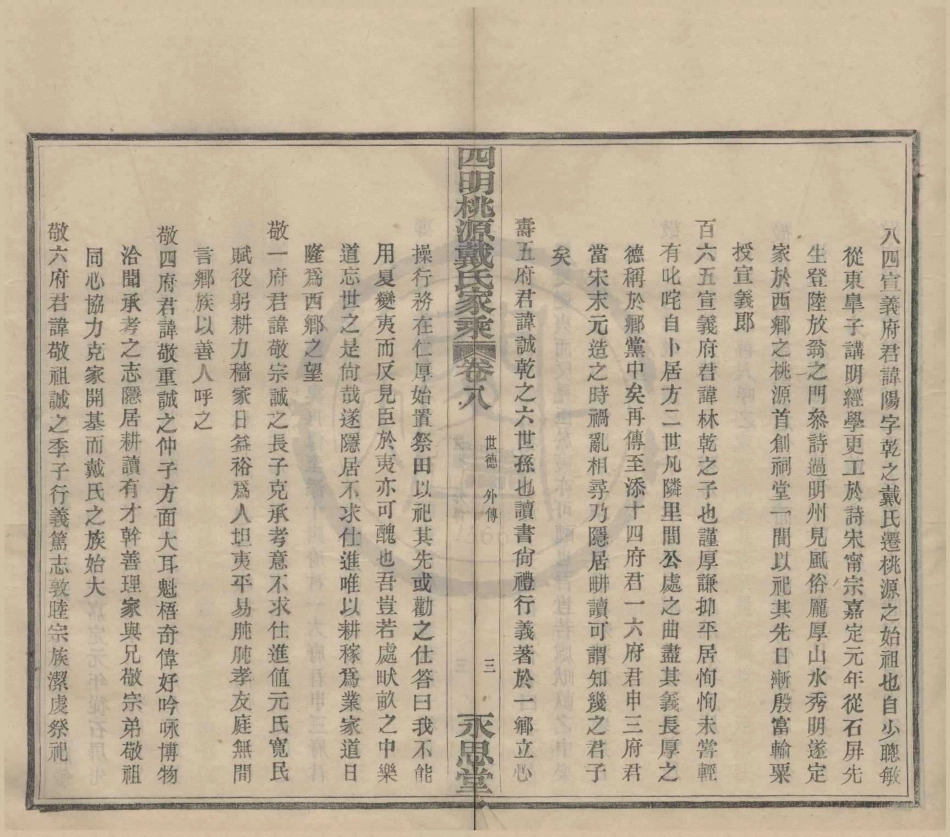 八四宣義府君諱陽字乾之戴氏遷桃源之始祖也自少聰敏
從東臯子講明經學更工於詩宋甯宗嘉定元年從石屏先
生登陸放翁之門叅詩過明州見風俗厖厚山水秀明遂定
家於西鄉之桃源首創祠堂一間以祀其先日漸殷富輸粟
授宣義郎
百六五宣義府君諱林乾之子也謹厚謙抑平居恂恂未嘗輕
有叱咤自卜居方二世凡隣里間公處之曲盡其義長厚之
德稱於鄉黨中矣再傳至添十四府君一六府君申三府君
當宋末元造之時禍亂相尋乃隱居畊讀可謂知幾之君子
矣
壽五府君諱誠乾之六世孫也讀書尙禮行義著於一鄉立心
四明桃源戴氏家乘
卷八
世德 外傳
三
永思堂
操行務在仁厚始置祭田以祀其先或勸之仕答曰我不能
用夏變夷而反見臣於夷亦可醜也吾豈若處畎畝之中樂
道忘世之是尙哉遂隱居不求仕進唯以耕稼爲業家道日
隆爲西鄉之望
敬一府君諱敬宗誠之長子克承考意不求仕進值元氏寬民
賦役躬耕力穡家日益裕爲人坦夷平易肫肫孝友庭無間
言鄉族以善人呼之
敬四府君諱敬重誠之仲子方面大耳魁梧奇偉好吟咏博物
洽聞承考之志隱居耕讀有才幹善理家與兄敬宗弟敬祖
同心協力克家開基而戴氏之族始大
敬六府君諱敬祖誠之季子行義篤志敦睦宗族潔虔祭祀